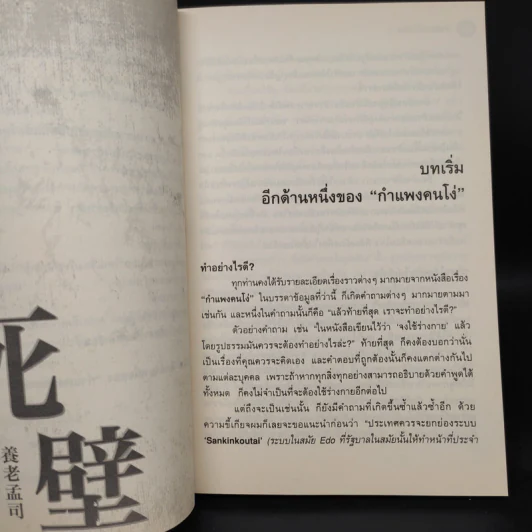 死
壁
養老孟司
บทเริ่ม
อีกด้านหนึ่งของ “กำแพงคนโง่”
ทำอย่างไรดี?
ทุกท่านคงได้รับรายละเอียดเรื่องราวต่างๆ มากมายจากหนังสือเรื่อง
“กำแพงคนโง่” ในบรรดาข้อมูลที่ว่านี้ ก็เกิดคำถามต่างๆ มากมายตามมา
เช่นกัน และหนึ่งในคำถามนั้นก็คือ “แล้วท้ายที่สุด เราจะทำอย่างไรดี?”
ตัวอย่างคำถาม เช่น “ในหนังสือเขียนไว้ว่า ‘จงใช้ร่างกาย’ แล้ว
โดยรูปธรรมมันควรจะต้องทำอย่างไรล่ะ?” ท้ายที่สุด ก็คงต้องบอกว่านั่น
เป็นเรื่องที่คุณควรจะคิดเอง และคำตอบที่ถูกต้องนั้นก็คงแตกต่างกันไป
ตามแต่ละบุคคล เพราะถ้าหากทุกสิ่งทุกอย่างสามารถอธิบายด้วยคำพูดได้
ทั้งหมด ก็คงไม่จำเป็นที่จะต้องใช้ร่างกายอีกต่อไป
แต่ถึงจะเป็นเช่นนั้น ก็ยังมีคำถามที่เกิดขึ้นซ้ำแล้วซ้ำอีก ด้วย
ความขี้เกียจผมก็เลยจะขอแนะนำก่อนว่า “ประเทศควรจะยกย่องระบบ
‘Sankinkoutai’ (ระบบในสมัย Edo ที่รัฐบาลในสมัยนั้นให้ทำหน้าที่ประจำ